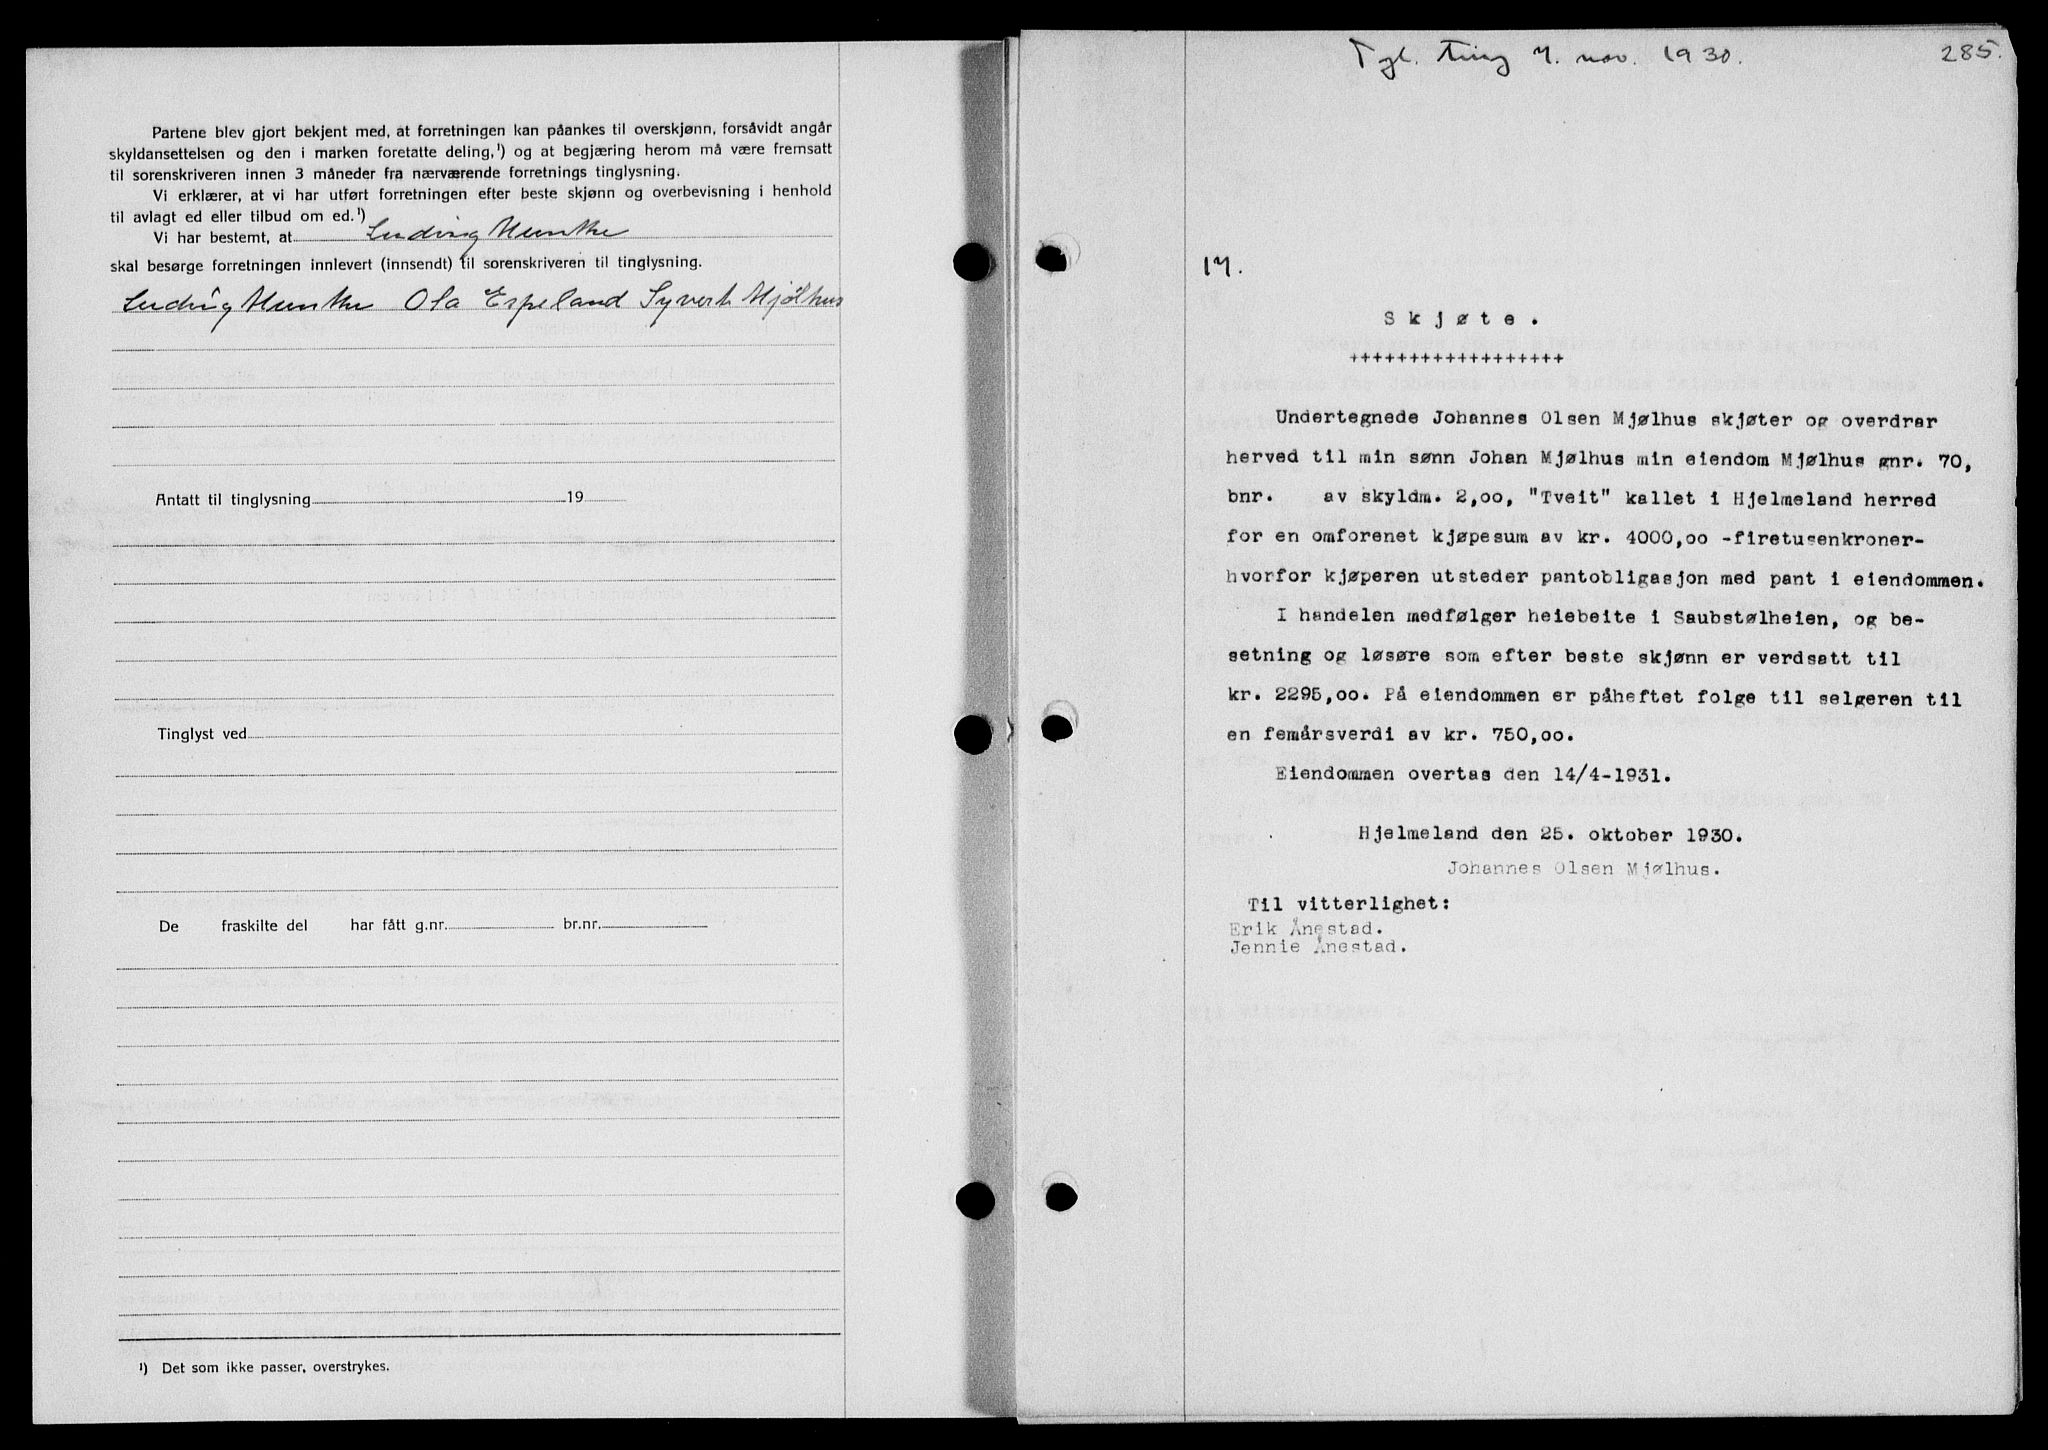 Partene blev gjort bekjent med, at forretningen kan påankes til overskjønn, forsåvidt angår
skyldansettelsen og den i marken foretatte deling,¹) og at begjæring herom må være fremsatt
til sorenskriveren innen 3 måneder fra nærværende forretnings tinglysning.
Vi erklærer, at vi har utført forretningen efter beste skjønn og overbevisning i henhold
til avlagt ed eller tilbud om ed.¹)
Vi har bestemt, at Ludvig Munthe
skal besørge forretningen innlevert (innsendt) til sorenskriveren til tinglysning.
Ludvig Munthe Ola Espeland Syvert Mjölhus
Antatt til tinglysning 19
Tinglyst ved
De fraskilte del har fått g.nr. br.nr.
¹) Det som ikke passer, overstrykes.
Tgl. ting 7. nov. 1930.
285.
17.
Skjøte.
++++++++++++++++++
Undertegnede Johannes Olsen Mjølhus skjøter og overdrar
herved til min sønn Johan Mjølhus min eiendom Mjølhus gnr. 70,
bnr. av skyldm. 2,oo, "Tveit" kallet i Hjelmeland herred
for en omforenet kjøpesum av kr. 4000,oo -firetusenkroner-
hvorfor kjøperen utsteder pantobligasjon med pant i eiendommen.
I handelen medfølger heiebeite i Saubstølheien, og be-
setning og løsøre som efter beste skjønn er verdsatt til
kr. 2295,oo. På eiendommen er påheftet folge til selgeren til
en femårsverdi av kr. 750,oo.
Eiendommen overtas den 14/4-1931.
Hjelmeland den 25. oktober 1930.
Johannes Olsen Mjølhus.
Til vitterlighet:
Erik Ånestad.
Jennie Ånestad.